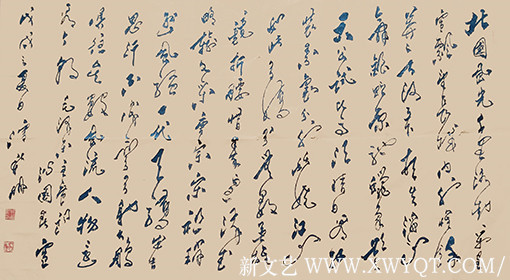 北国风光千里冰封万
里雪飘望长城内外惟余
莽莽大河上下顿失滔滔山
舞银蛇原驰蜡象欲与
天公试比高须晴日看红
装素裹分外妖娆江山
如此多娇引无数英雄
竞折腰惜秦皇汉武
略输文采唐宗宋祖稍
逊风骚一代天骄成吉
思汗只识弯弓射大雕
俱往矣数风流人物还
看今朝 毛泽东主席词沁园春雪
戊戌之夏日
新文艺 WWW.XWYQT.COM